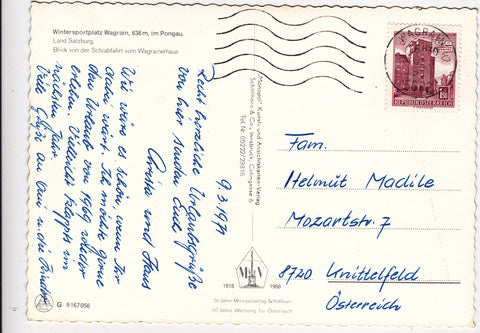 Wintersportplatz Wagrain, 836m, im Pongau,
Land Salzburg.
Blick von der Schiabfahrt vom Wagrainerhaus
9.3.1971
Recht herzliche Urlaubsgrüße
von hier senden Euch
Christa und Hans
Wie wäre es schön, wenn Ihr
dabei wärt. Ich möchte gerne
den Urlaub von 1969 wieder
erleben. Vielleicht klappts im
nächsten Jahr.
Viele Grüße an Omi u. die Kinder
"Monopol" Kunst- und Ansichtskarten-Verlag
Schöllhorn & Co., Innsbruck,
Tel. Nr. 05222/29816
WAGRAIN
REPUBLIK ÖSTERREICH
Fam.
Helmut Madile
Mozartstr. 7
8720 Knittelfeld
Österreich
M V
1918 1968
50 Jahre Monopolverlag Schöllhorn
50 Jahre Werbung für Österreich
G 9167056